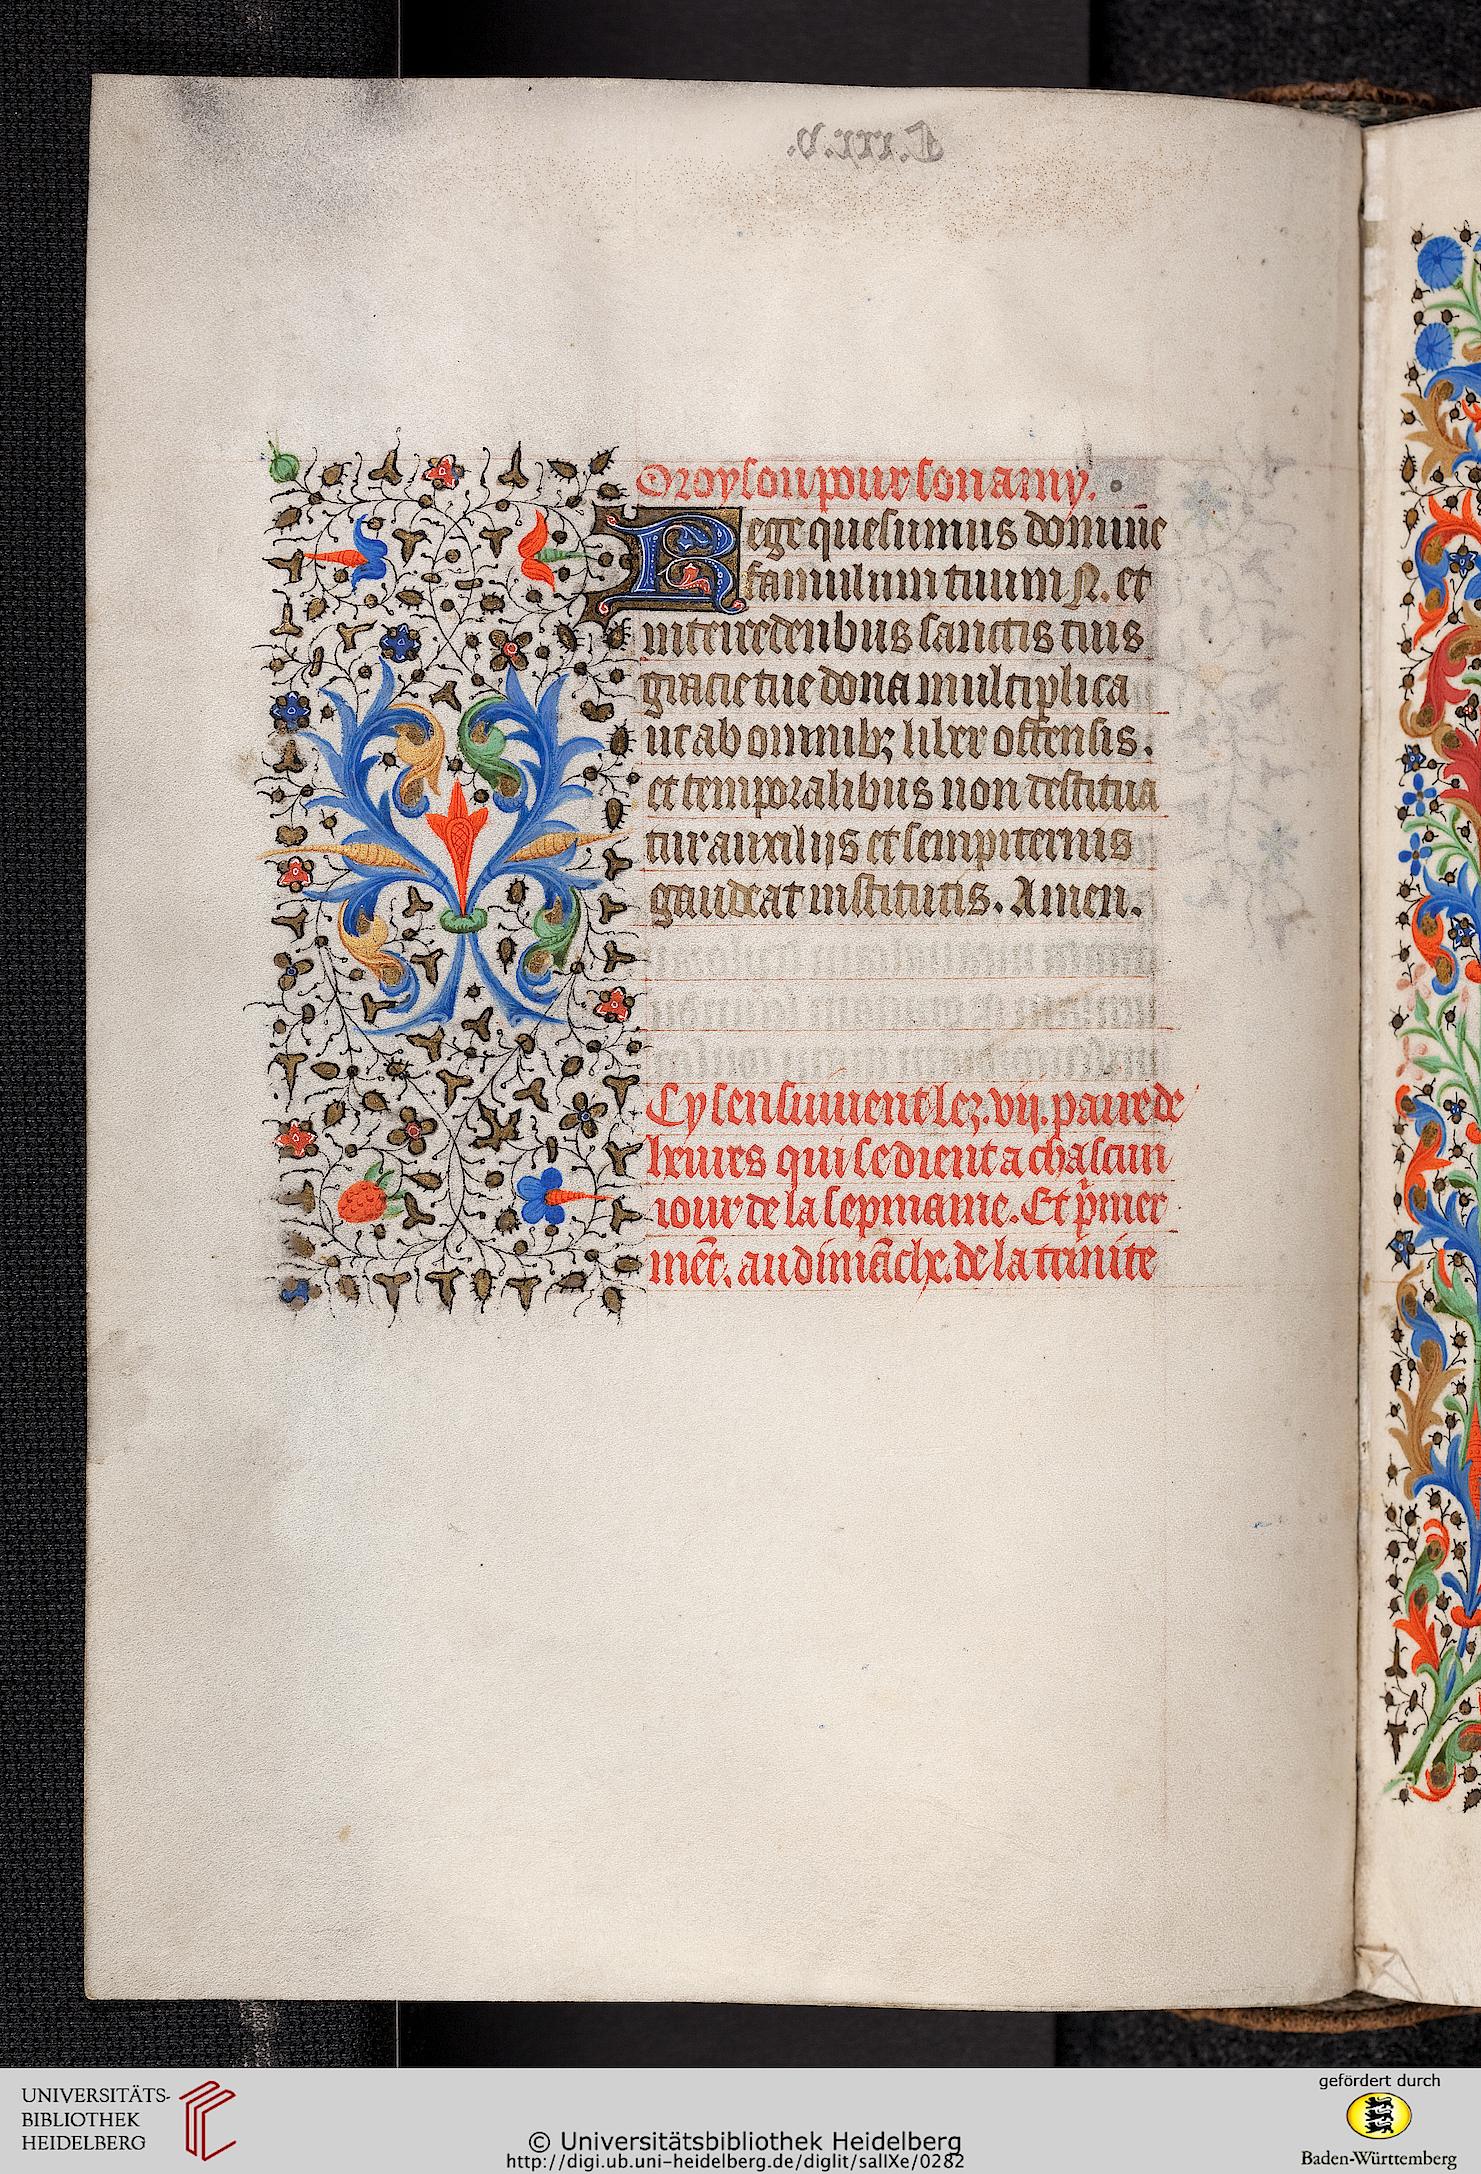 Oroyson pour son amy.
Rege quesumus domine
famulum tuum N. et
intercedentibus sanctis tuis
gracie tue dona multiplica
ut ab omnibꝫ liber offensis.
et temporalibus non destitua
tur auxiliis et sempiternis
gaudeat institutis. Amen.
Cy sensuiuent leꝫ .vij. paire de
heures qui se dient a chascun
iour de la sepmaine. Et p̃mier
mẽt. au dimãche. de la trinite
UNIVERSITÄTS-
BIBLIOTHEK
HEIDELBERG
© Universitätsbibliothek Heidelberg
http://digi.ub.uni-heidelberg.de/diglit/salIXe/0282
gefördert durch
Baden-Württemberg